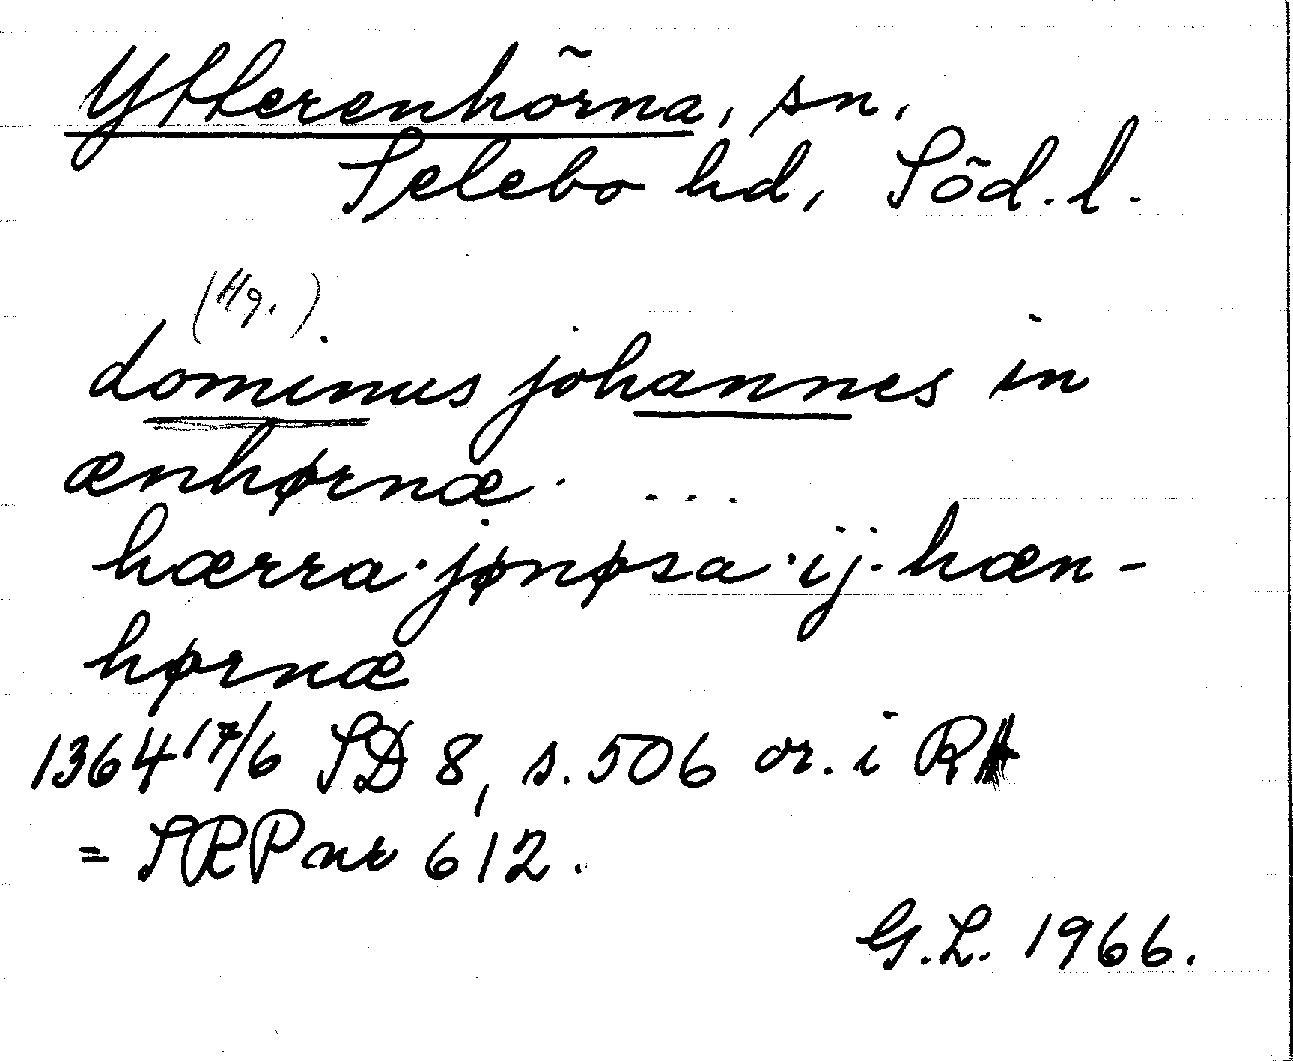 Ytterenhörna, sn,
Selebo hd, Söd. l.
(Hg.)
dominus johannes in
ænhørnæ. ...
hærra·jønøsa·ij·hæn-
hørnæ
1364 17/6 SD 8, s. 506 or. i RA
= SRP nr 612.
G.L. 1966.